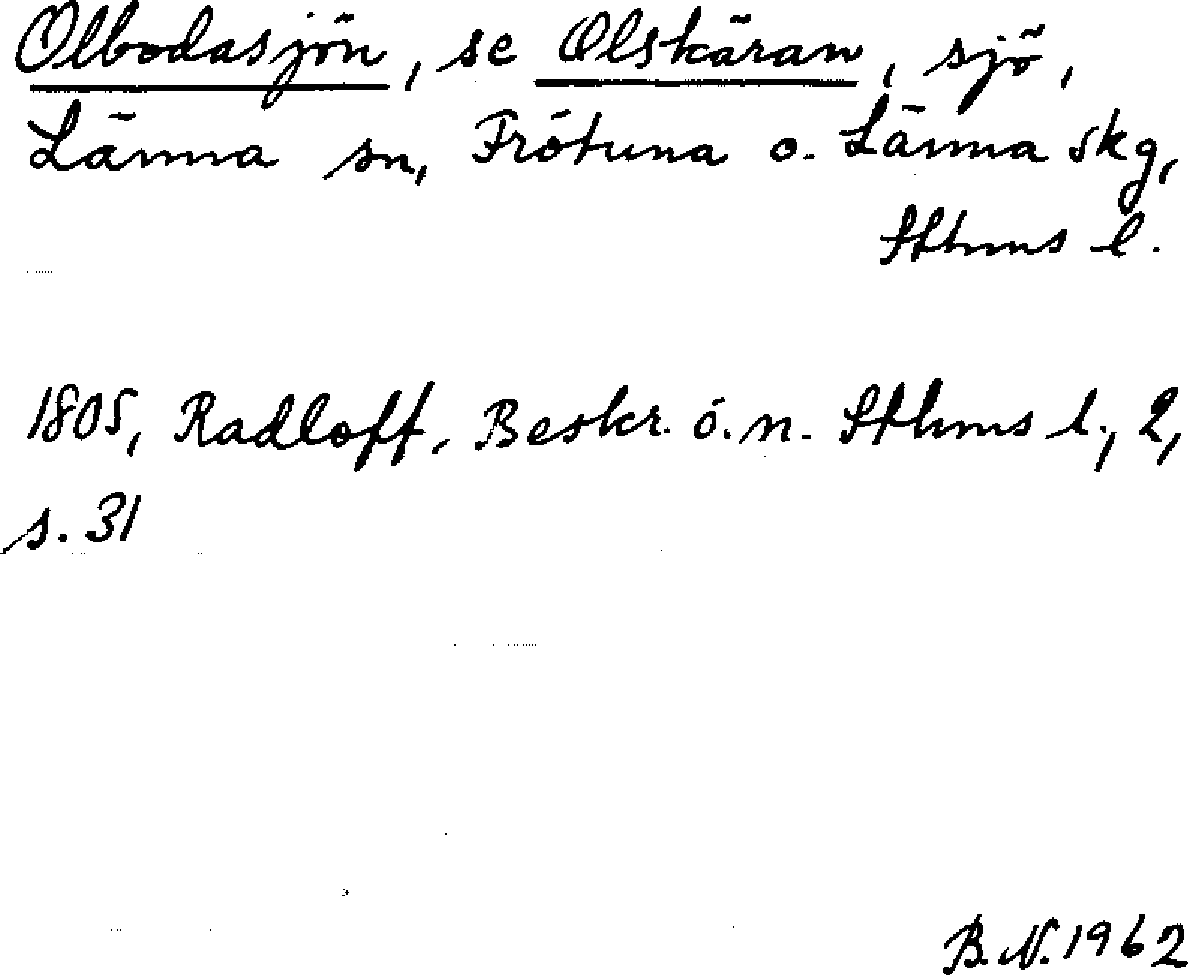 Olbodasjön, se Olskäran, sjö,
Länna sn, Frötuna o. Länna skg,
Sthms l.
1805, Radloff, Beskr. ö. n. Sthms l., 2,
s. 31
B.N. 1962